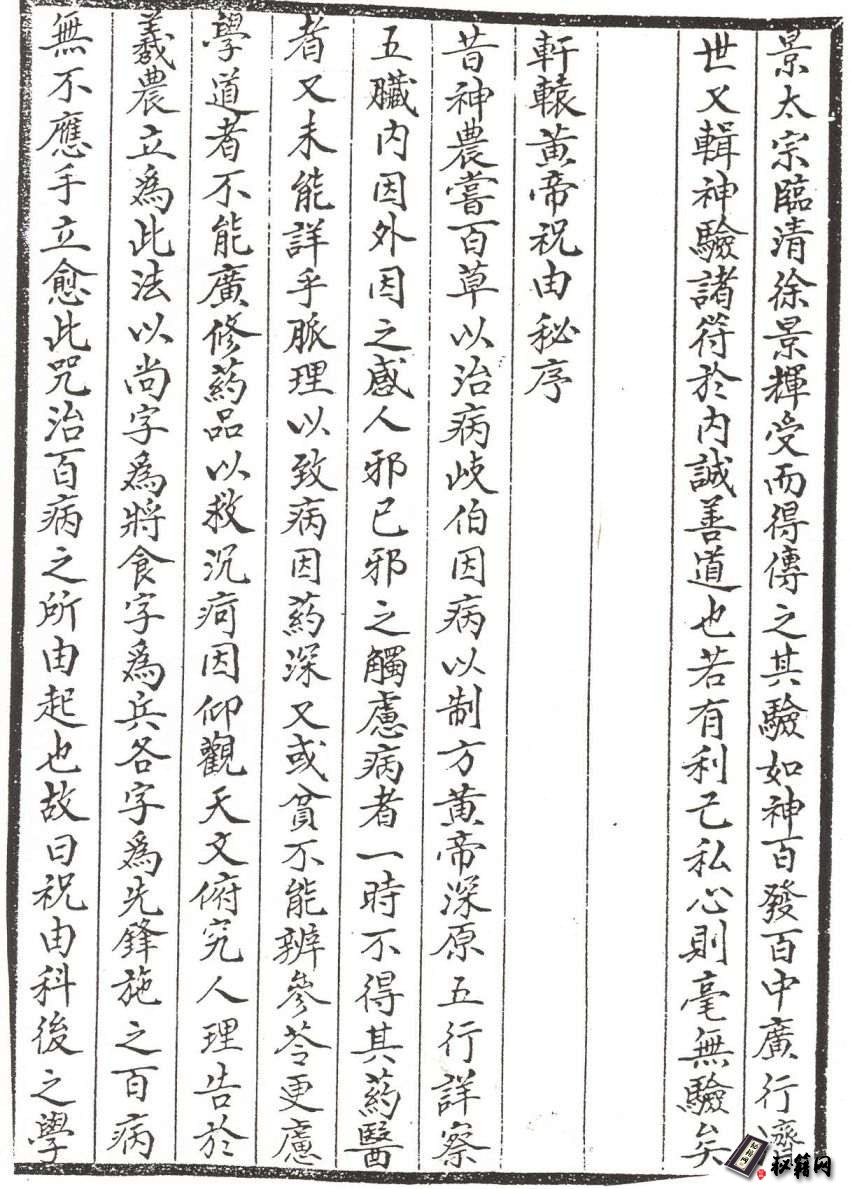 景太宗臨清徐景輝受而得傳之其驗如神百發百中廣行濟
世又輯神驗諸符於內誠善道也若有利己私心則毫無驗矣
軒轅黃帝祝由秘序
昔神農嘗百草以治病岐伯因病以制方黃帝深原五行詳察
五臟內因外因之感人邪已邪之觸慮病者一時不得其葯醫
者又未能詳乎脈理以致病因葯深又或貧不能辨參苓更慮
學道者不能廣修葯品以救沉疴因仰觀天文俯究人理告於
羲農立爲此法以尚字爲將食字爲兵各字爲先鋒施之百病
無不應手立愈此咒治百病之所由起也故曰祝由科後之學
秘籍网